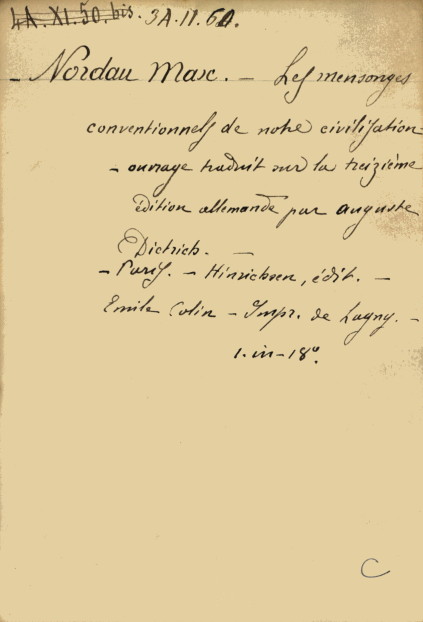 4A.XI.50.bis. 3A.II.60.
- Nordau Max. - Les mensonges
conventionnels de notre civilisation
- ouvrage traduit sur la treizième
édition allemande par auguste
Dietrich. -
- Paris. - Hinrichsen, édit. -
Emile Colin - Impr. de Lagny. -
1. in-18º.
C